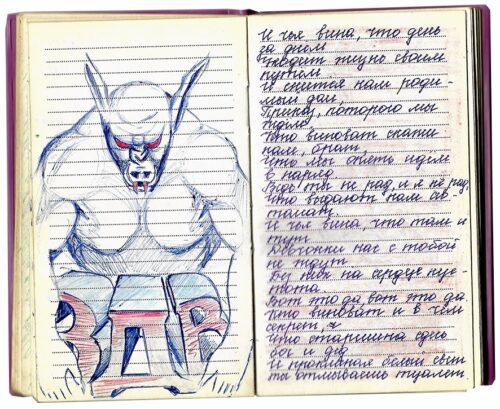 ЗАПВ
И чья вина, что день
за днем
Уходит жизнь своим
путем
И снится нам роди-
мый дом,
Приказ, которого мы
ждем
Кто виноват скажи
нам, брат,
Что мы опять идём
в наряд.
Ведь ты не рад, и я не рад,
Что выдают нам ав-
томат.
И чья вина, что там и
тут
Девчонки нас с тобой
не ждут
Без них на сердце пус-
тота.
Вот это да, вот это да.
Кто виноват и в чем
секрет,
Что старшина здесь
бог и дед
И проклиная белый свет
ты отмываешь туалет.